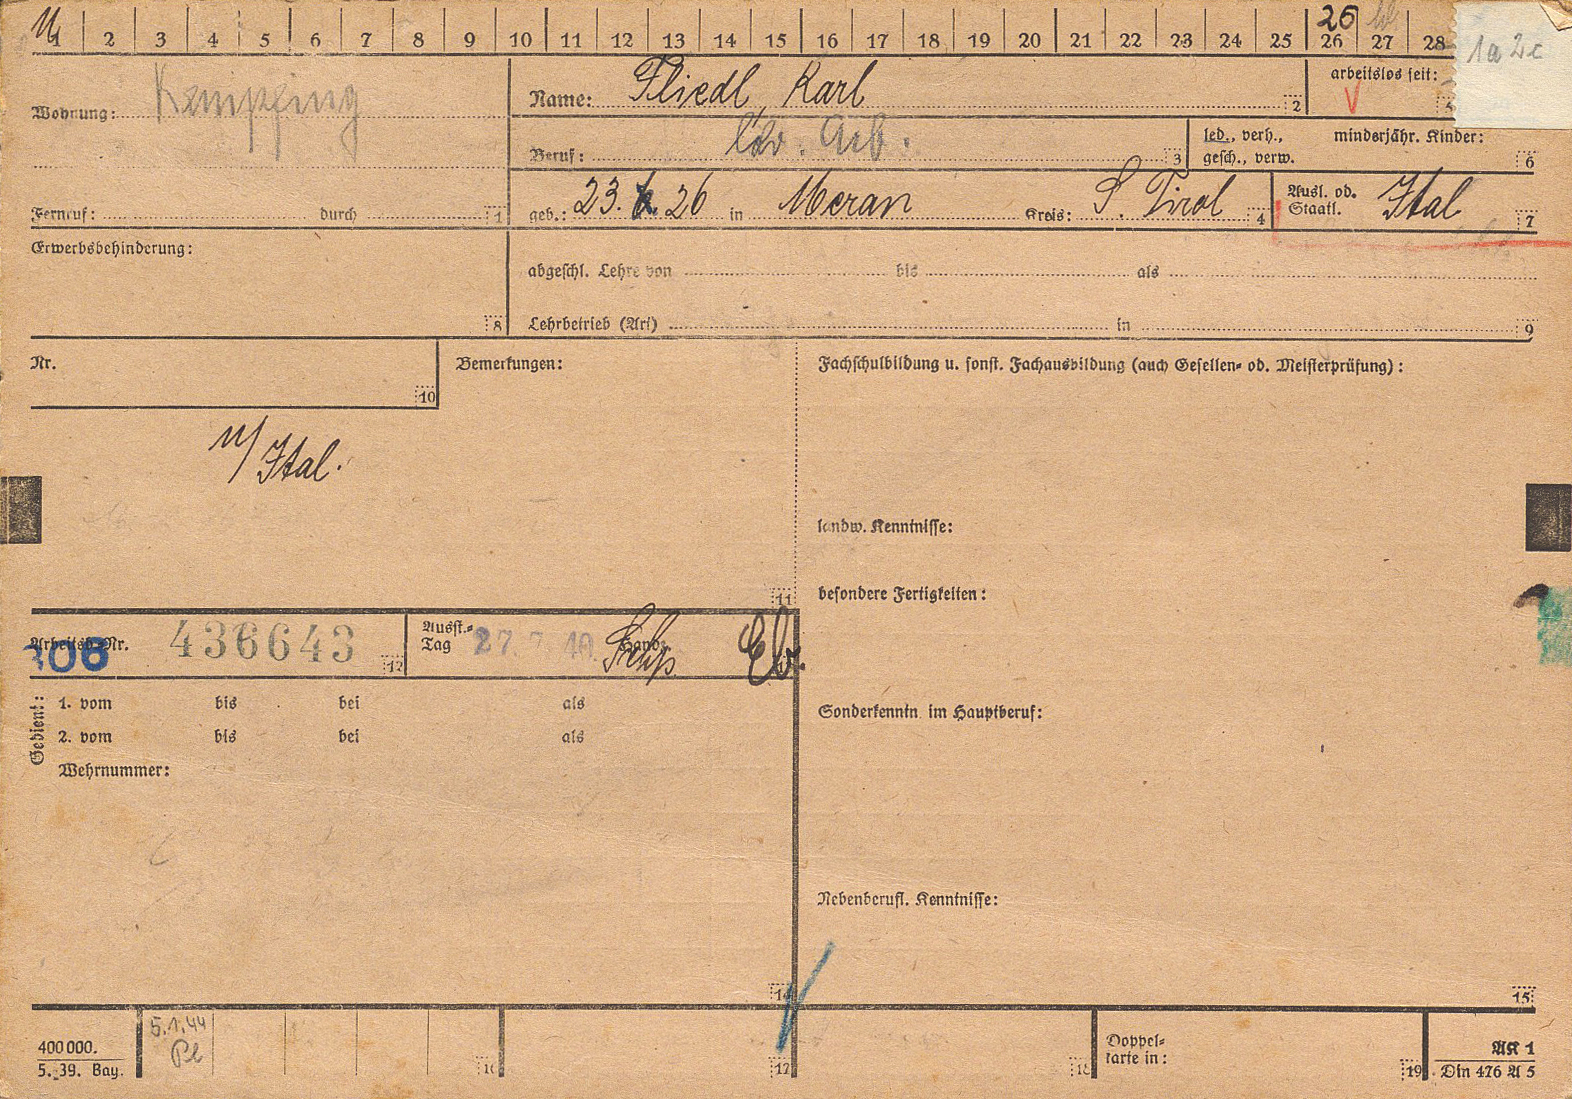 1 2 3 4 5 6 7 8 9 10 11 12 13 14 15 16 17 18 19 20 21 22 23 24 25 26 27 28
26
1a 2c
Wohnung: Kempfing
Name: Fliedl, Karl 2
arbeitslos seit:
Beruf: ldw. Arb. 3
led., verh., gesch., verw.
minderjähr. Kinder: 6
Fernruf: durch 1
geb.: 23. 26 in Meran Kreis: S. Tirol 4
Ausl. od. Staatl. Ital 7
Erwerbsbehinderung: 8
abgeschl. Lehre von bis als
Lehrbetrieb (Art) in 9
Nr. 10
Bemerkungen:
Fachschulbildung u. sonst. Fachausbildung (auch Gesellen- od. Meisterprüfung):
Ital.
landw. Kenntnisse:
besondere Fertigkeiten:
11
Arbeitsb.-Nr. 436643 12
306
Ausst.-Tag 27. 7. 40
Handz.
Sonderkenntn. im Hauptberuf:
Gedient:
1. vom bis bei als
2. vom bis bei als
Wehrnummer:
Nebenberufl. Kenntnisse:
14
15
400 000.
5. 39. Bay.
5.1.44
16
17
18
Doppelkarte in: 19
AK 1
Din 476 A 5